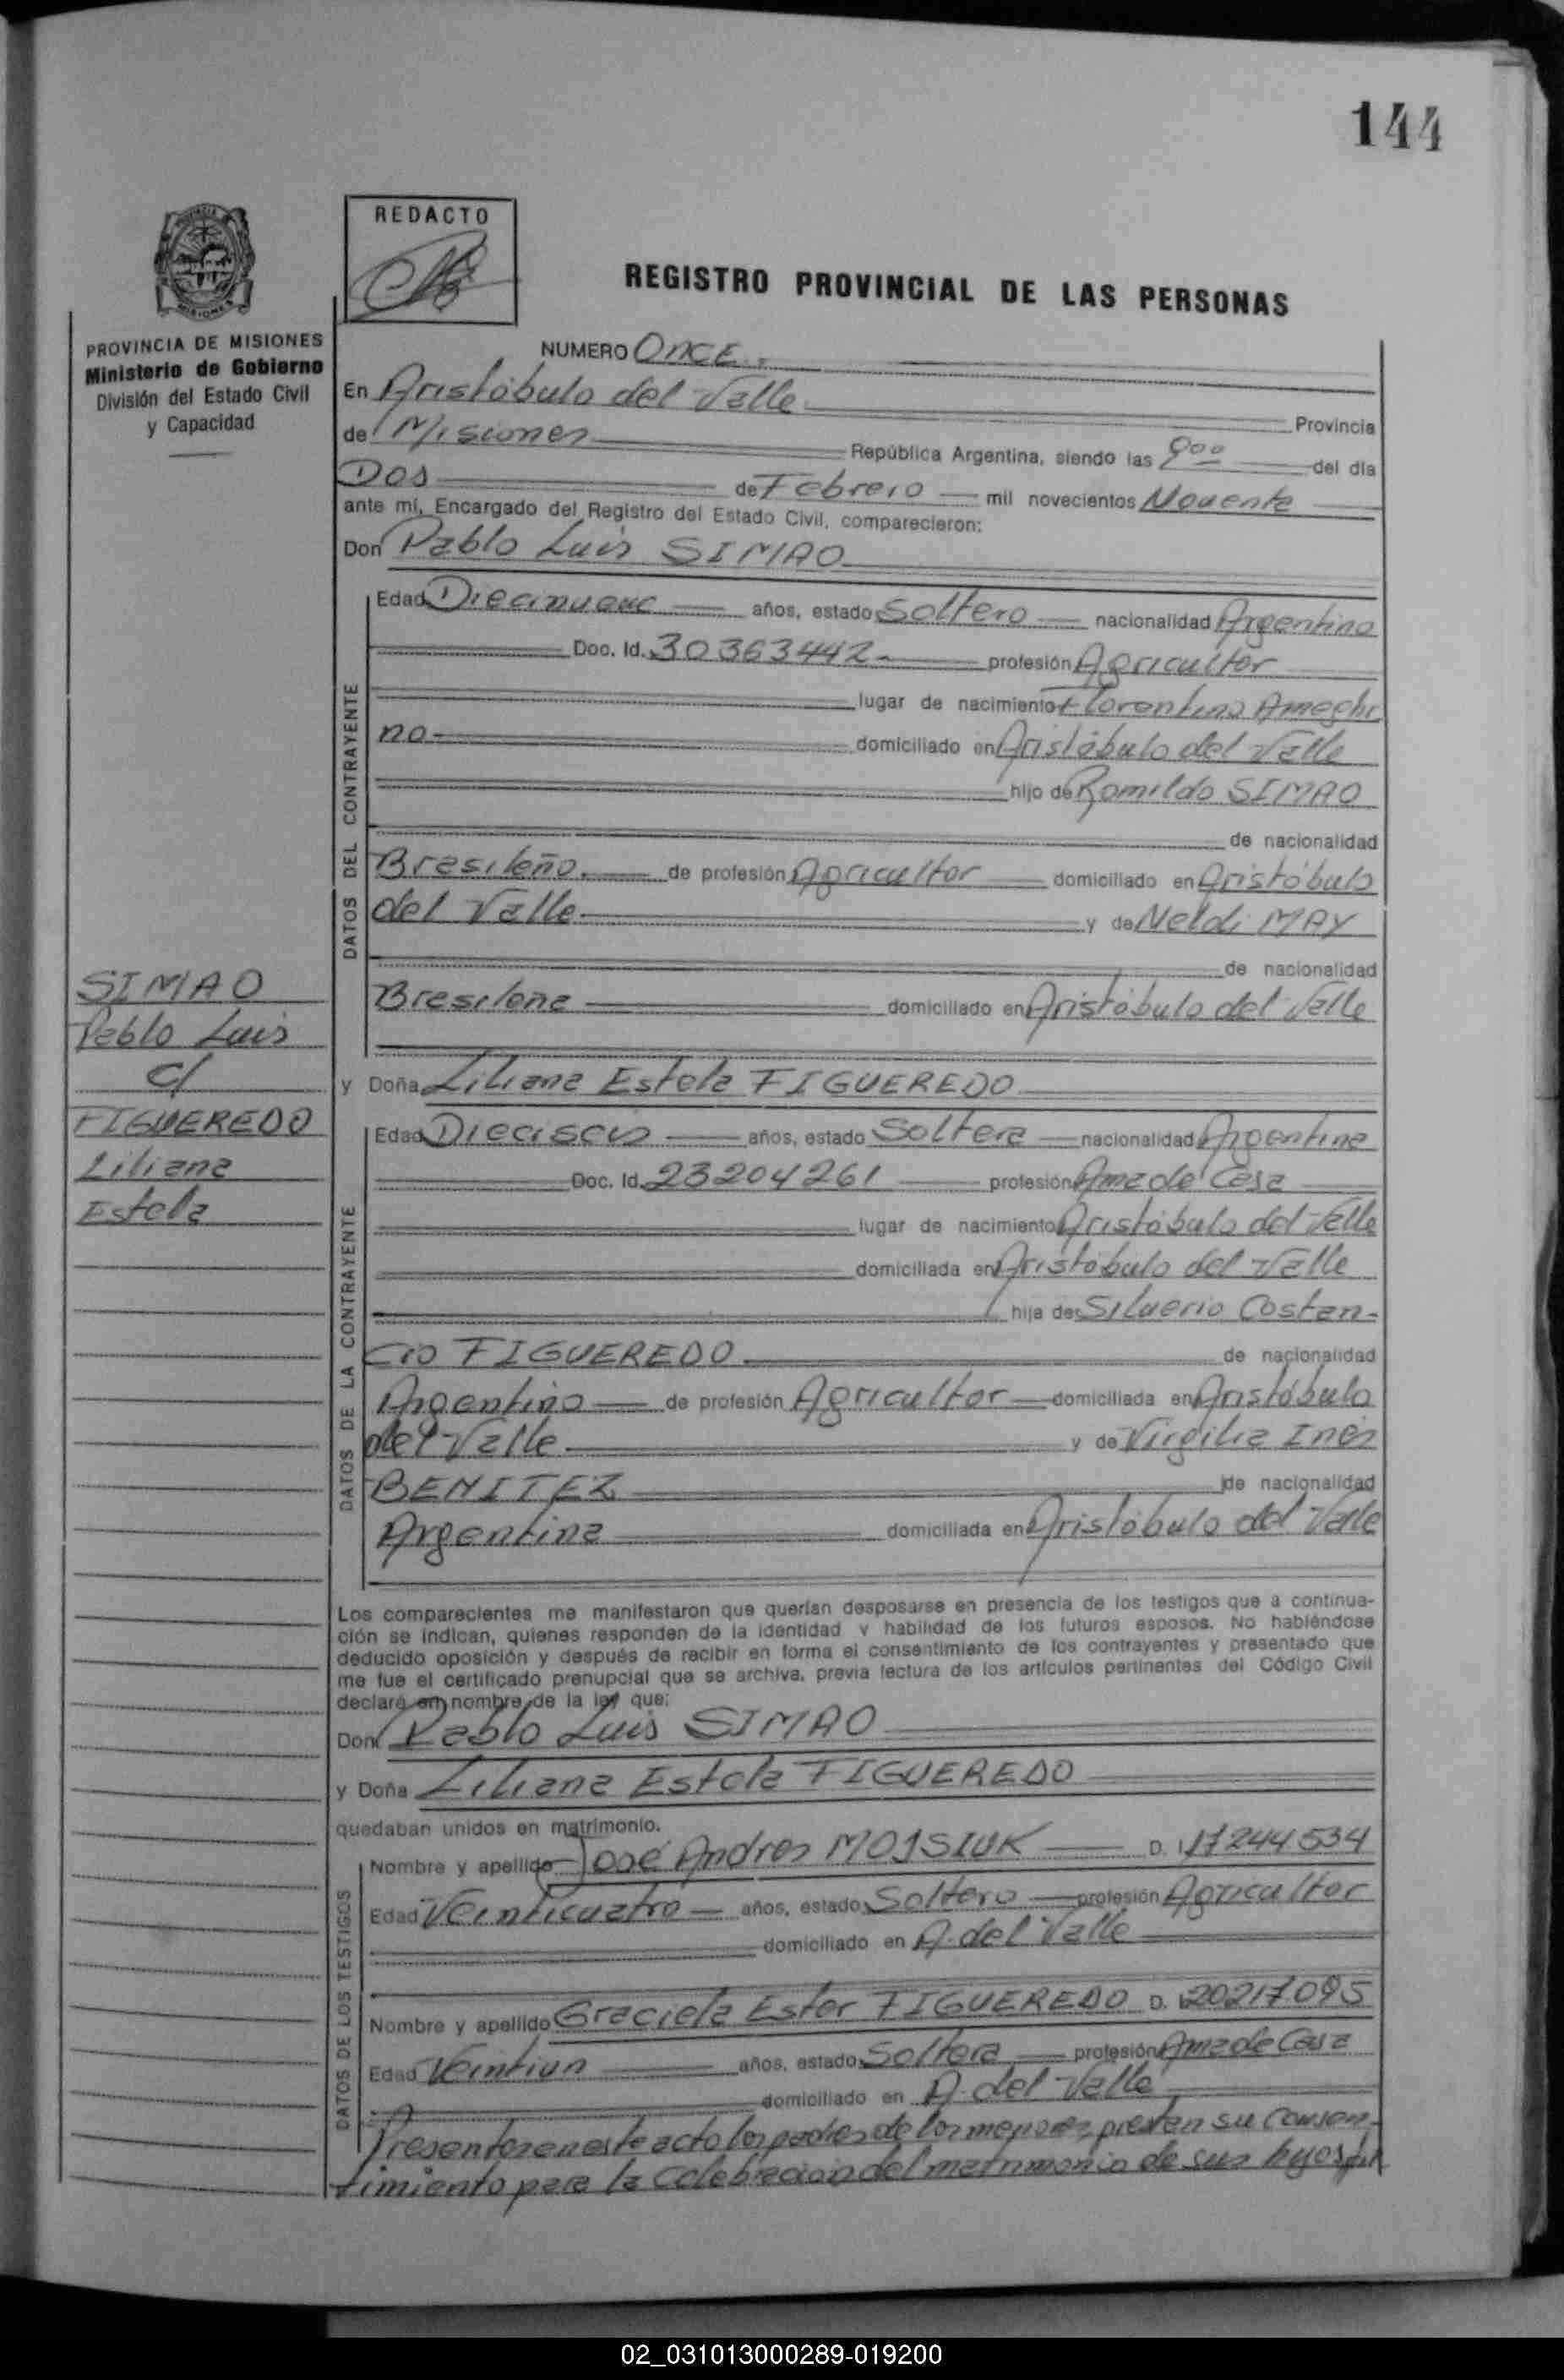 144
REDACTO
REGISTRO PROVINCIAL DE LAS PERSONAS
PROVINCIA DE MISIONES
Ministerio de Gobierno
División del Estado Civil
y Capacidad
NUMERO ONCE.
En Aristóbulo del Valle Provincia
de Misiones República Argentina, siendo las 9 00 del día
Dos de Febrero mil novecientos Noventa
ante mí, Encargado del Registro del Estado Civil, comparecieron:
Don Pablo Luis SIMAO
DATOS DEL CONTRAYENTE
Edad Diecinueve años, estado Soltero nacionalidad Argentino
Doc. Id. 30363442- profesión Agricultor
lugar de nacimiento Florentino Ameghi
no- domiciliado en Aristóbulo del Valle
hijo de Romildo SIMAO
de nacionalidad
Brasileño. de profesión Agricultor domiciliado en Aristóbulo
del Valle y de Neldi MAY
de nacionalidad
Brasileña domiciliado en Aristóbulo del Valle
SIMAO
Pablo Luis
c/
FIGUEREDO
Liliana
Estela
y Doña Liliana Estela FIGUEREDO
DATOS DE LA CONTRAYENTE
Edad Dieciseis años, estado Soltera nacionalidad Argentina
Doc. Id. 23204261 profesión Ama de Casa
lugar de nacimiento Aristóbulo del Valle
domiciliada en Aristóbulo del Valle
hija de Silverio Costan-
cio FIGUEREDO de nacionalidad
Argentino de profesión Agricultor domiciliada en Aristóbulo
del Valle y de Virgilia Inés
BENITEZ de nacionalidad
Argentina domiciliada en Aristóbulo del Valle
Los comparecientes me manifestaron que querían desposarse en presencia de los testigos que a continua-
ción se indican, quienes responden de la identidad y habilidad de los futuros esposos. No habiéndose
deducido oposición y después de recibir en forma el consentimiento de los contrayentes y presentado que
me fue el certificado prenupcial que se archiva, previa lectura de los artículos pertinentes del Código Civil
declaré en nombre de la ley que:
Don Pablo Luis SIMAO
y Doña Liliana Estela FIGUEREDO
quedaban unidos en matrimonio.
DATOS DE LOS TESTIGOS
Nombre y apellido José Andres MOJSIUK D. I. 17244534
Edad Veinticuatro años, estado Soltero profesión Agricultor
domiciliado en A. del Valle
Nombre y apellido Graciela Ester FIGUEREDO D. I. 20217095
Edad Veintiun años, estado Soltera profesión Ama de Casa
domiciliado en A. del Valle
Presentes en este acto los padres de los menores prestan su consen-
timiento para la celebración del matrimonio de sus hijos
02_031013000289-019200